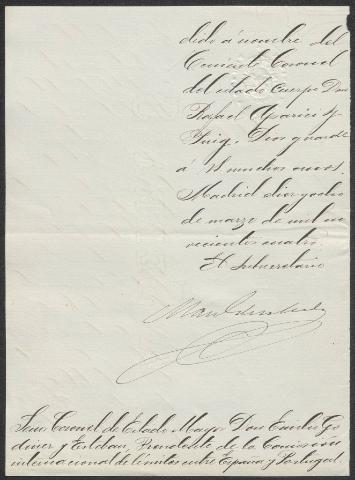 dido á nombre del
Teniente Coronel
del citado Cuerpo Don
Rafael Aparici y
Puig. Dios guarde
á V. muchos años.
Madrid diez y ocho
de marzo de mil no
vecientos cuatro.
El Subsecretario
Señor Coronel de Estado Mayor Don Eusebio Go
diner y Esteban, Presidente de la Comisión
internacional de límites entre España y Portugal